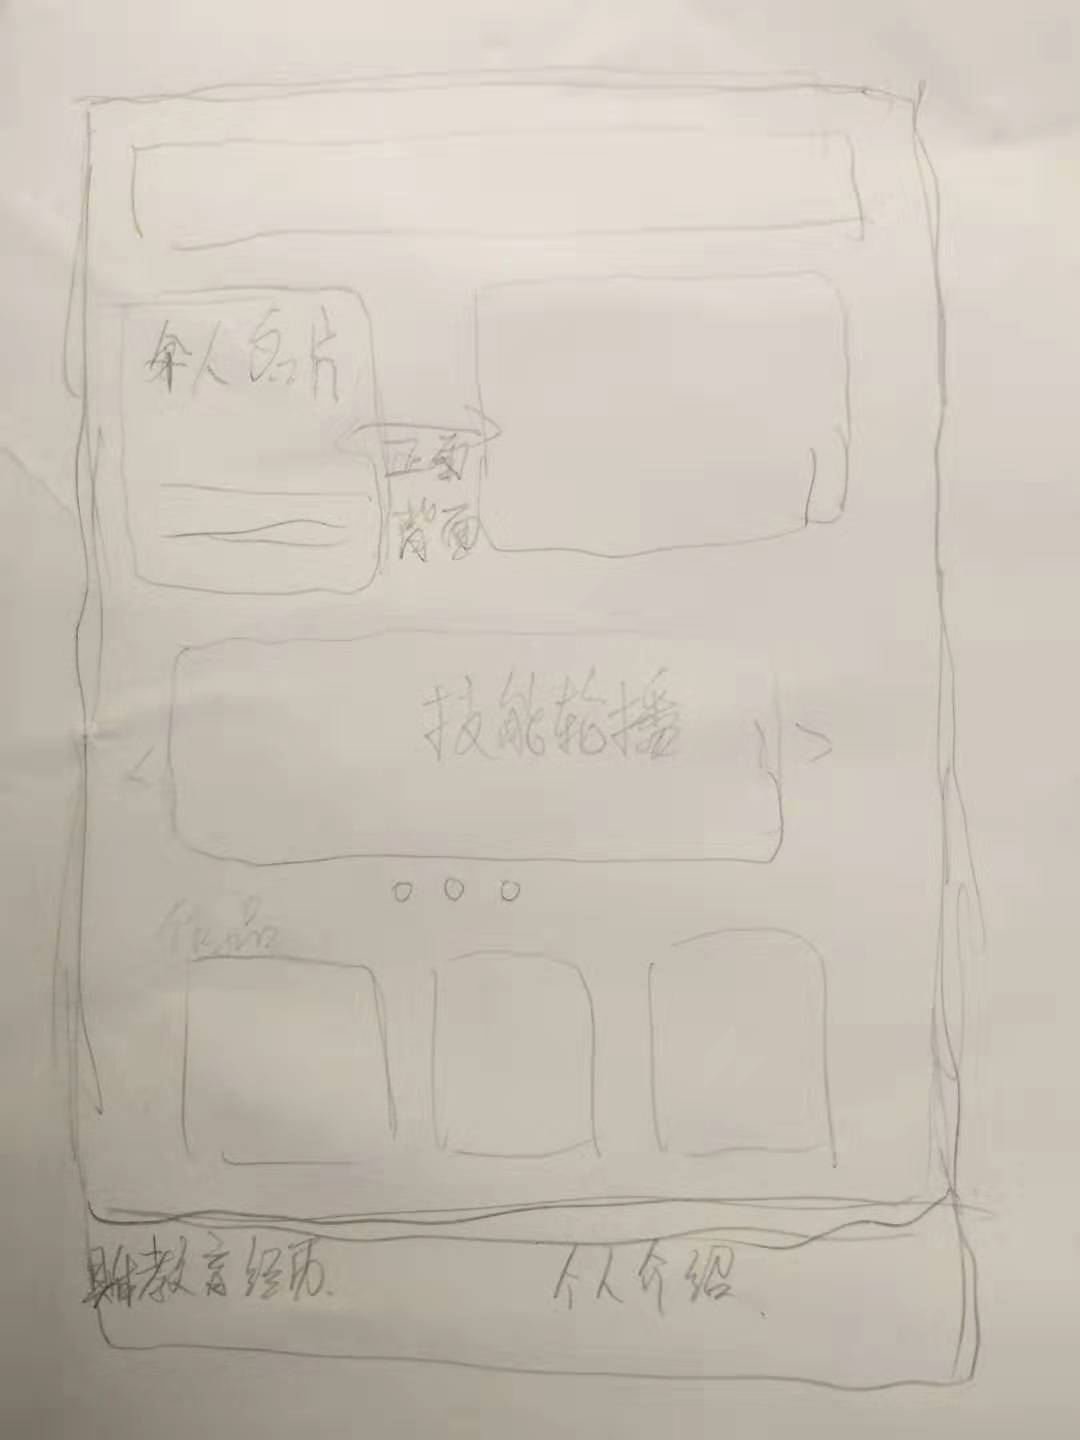 个人名片
正面
背面
技能轮播
作品
教育经历
个人介绍